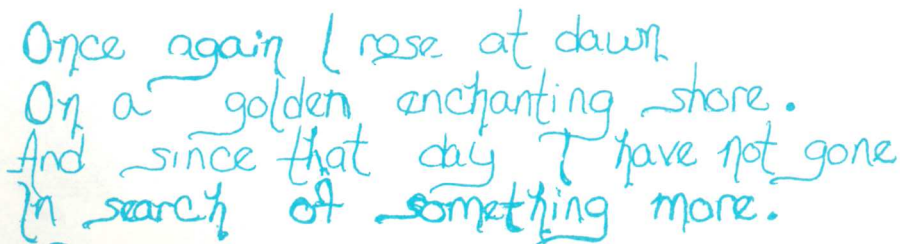 Once again I rose at dawn
On a golden enchanting shore.
And since that day I have not gone
In search of something more.